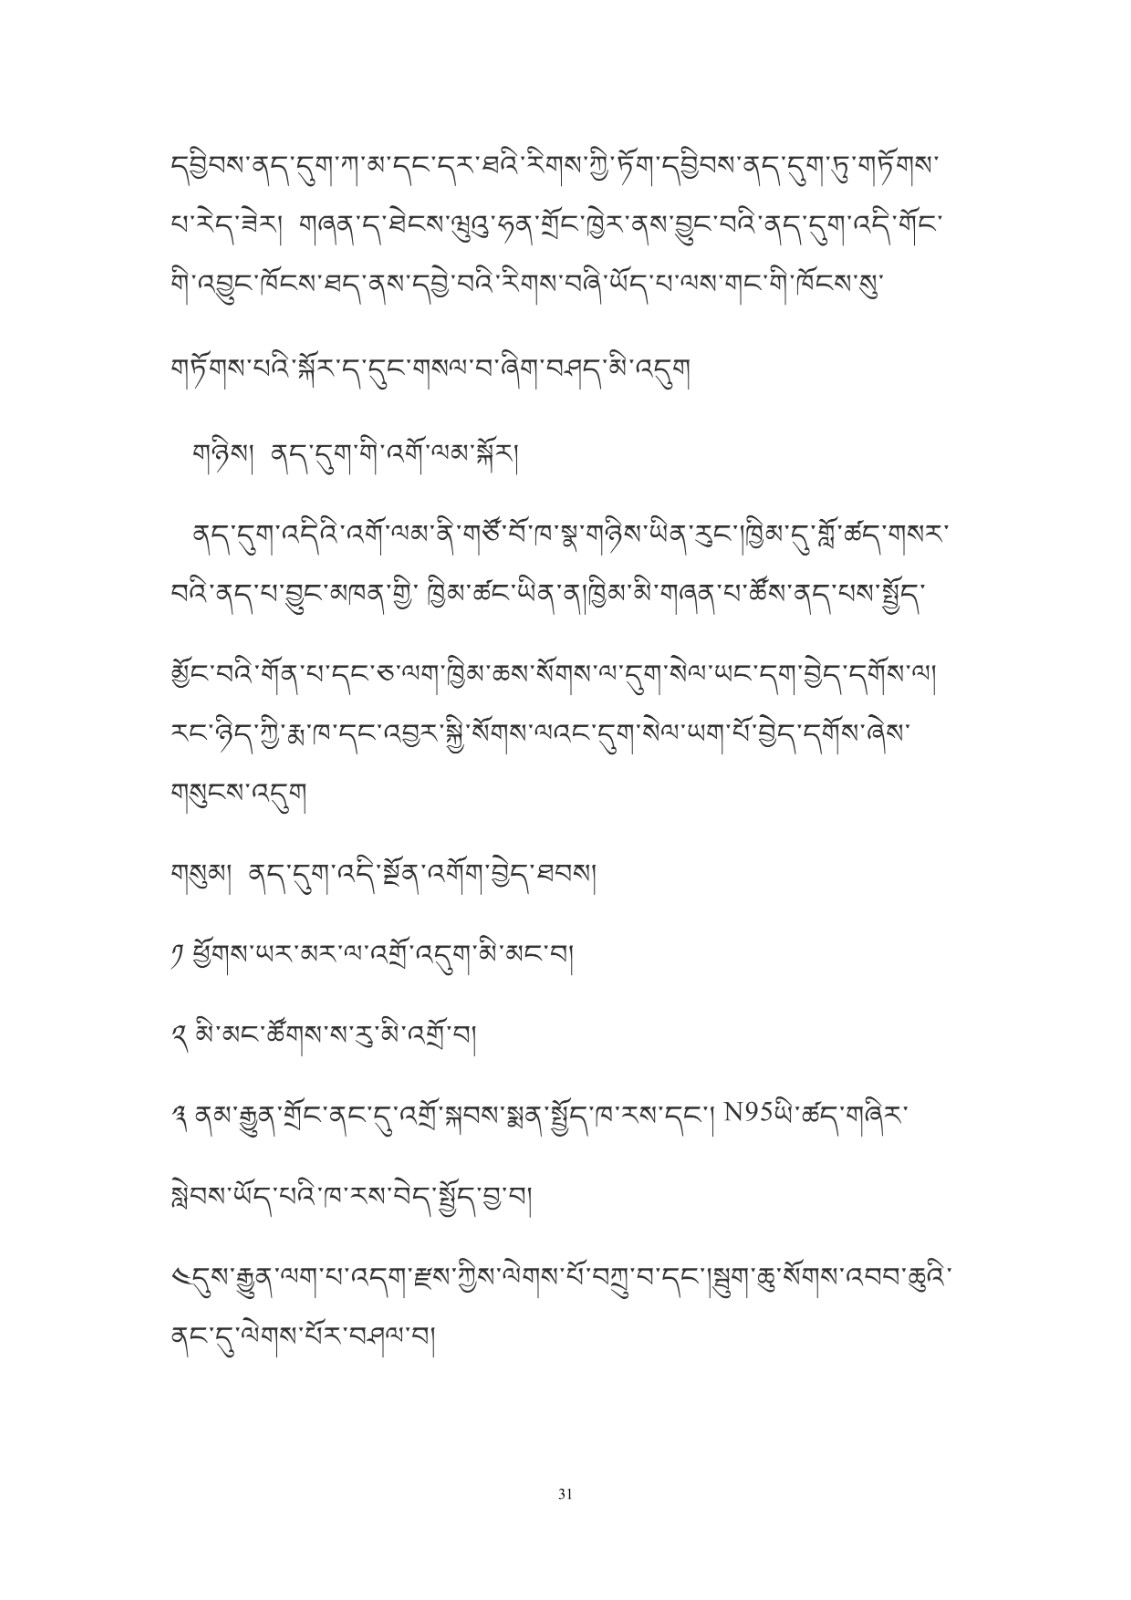 དབྱིབས་ནད་དུག་ཀ་མ་དང་དར་ཐའི་རིགས་ཀྱི་ཏོག་དབྱིབས་ནད་དུག་ཏུ་གཏོགས་
པ་རེད་ཟེར། གཞན་ད་ཐེངས་ཝུའུ་ཧན་གྲོང་ཁྱེར་ནས་བྱུང་བའི་ནད་དུག་འདི་གོང་
གི་འབྱུང་ཁོངས་ཐད་ནས་དབྱེ་བའི་རིགས་བཞི་ཡོད་པ་ལས་གང་གི་ཁོངས་སུ་
གཏོགས་པའི་སྐོར་ད་དུང་གསལ་བ་ཞིག་བཤད་མི་འདུག
གཉིས། ནད་དུག་གི་འགོ་ལམ་སྐོར།
ནད་དུག་འདིའི་འགོ་ལམ་ནི་གཙོ་བོ་ཁ་སྣ་གཉིས་ཡིན་རུང་།ཁྱིམ་དུ་གློ་ཚད་གསར་
བའི་ནད་པ་བྱུང་མཁན་གྱི་ ཁྱིམ་ཚང་ཡིན་ན།ཁྱིམ་མི་གཞན་པ་ཚོས་ནད་པས་སྤྱོད་
མྱོང་བའི་གོན་པ་དང་ཅ་ལག་ཁྱིམ་ཆས་སོགས་ལ་དུག་སེལ་ཡང་དག་བྱེད་དགོས་ལ།
རང་ཉིད་ཀྱི་རྨ་ཁ་དང་འབྱར་སྐྱི་སོགས་ལའང་དུག་སེལ་ཡག་པོ་བྱེད་དགོས་ཞེས་
གསུངས་འདུག
གསུམ། ནད་དུག་འདི་སྔོན་འགོག་བྱེད་ཐབས།
༡ ཕྱོགས་ཡར་མར་ལ་འགྲོ་འདུག་མི་མང་བ།
༢ མི་མང་ཚོགས་ས་རུ་མི་འགྲོ་བ།
༣ ནམ་རྒྱུན་གྲོང་ནང་དུ་འགྲོ་སྐབས་སྨན་སྤྱོད་ཁ་རས་དང་། N95ཡི་ཚད་གཞིར་
སླེབས་ཡོད་པའི་ཁ་རས་བེད་སྤྱོད་བྱ་བ།
༤དུས་རྒྱུན་ལག་པ་འདག་རྫས་ཀྱིས་ལེགས་པོ་བཀྲུ་བ་དང་།སྦུག་ཆུ་སོགས་འབབ་ཆུའི་
ནང་དུ་ལེགས་པོར་བཤལ་བ།
31